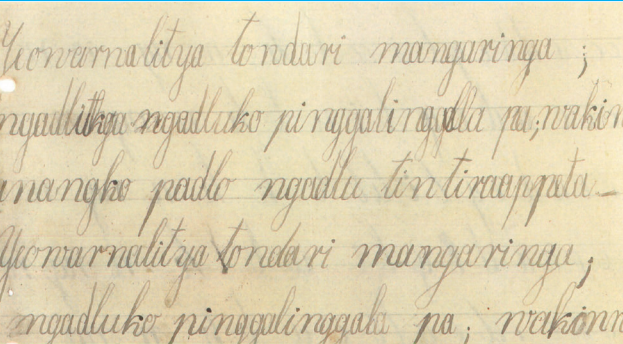 Yeowarnalitya tondari mangaringa;
ngadlitya ngadluko pinggalinggalla pa; wakin
anangko padlo ngadlu tintiraappeta—
Yeowarnalitya tondari mangaringa;
ngadluko pinggalinggala pa; wakinn